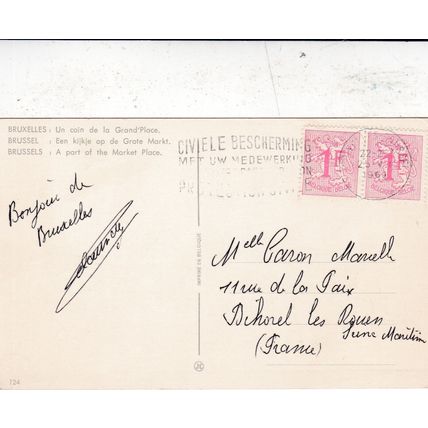 BRUXELLES : Un coin de la Grand'Place.
BRUSSEL : Een kijkje op de Grote Markt.
BRUSSELS : A part of the Market Place.
CIVIELE BESCHERMING
MET UW MEDEWERKING
1F
1F
Bonjour de
Bruxelles
Melle Caron Marcelle
11 rue de la Paix
Bihorel les Rouen
Seine Maritim
(France)
124